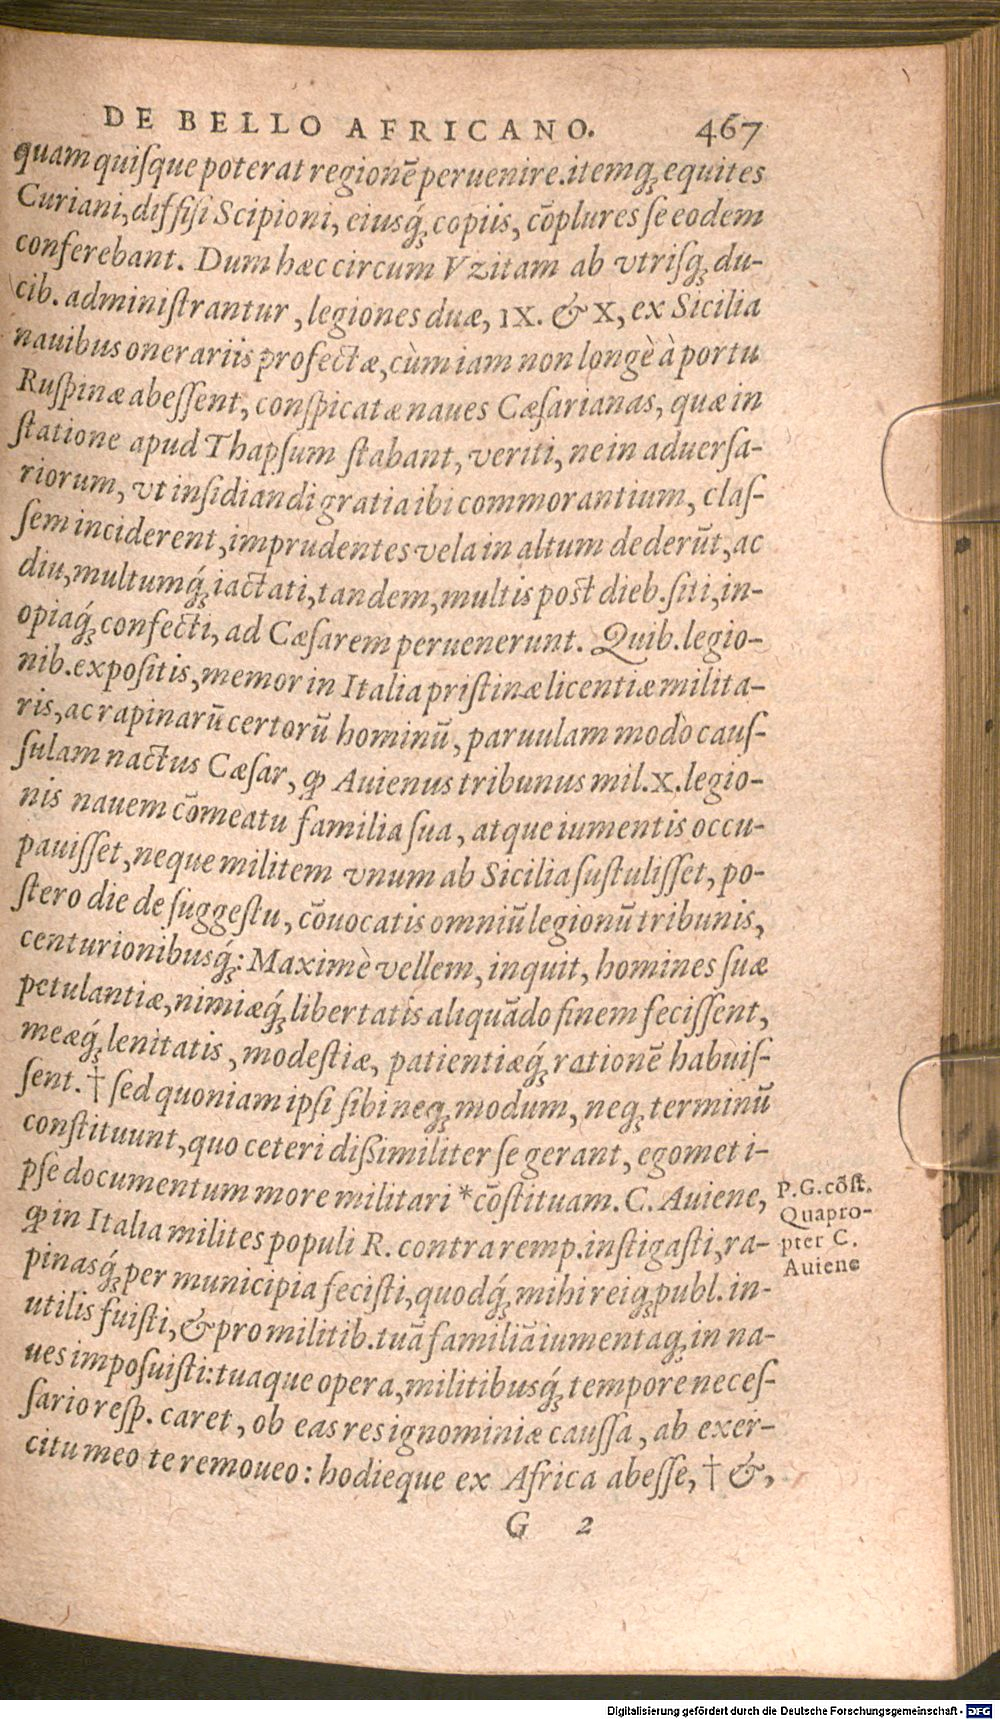 DE BELLO AFRICANO. 467
quam quiſque poterat regionē peruenire. itemq́ꝫ equites
Curiani, diffiſi Scipioni, eiusq́ꝫ copiis, cōplures ſe eodem
conferebant. Dum hæc circum Vzitam ab vtriſqꝫ du-
cib. adminiſtrantur, legiones duæ, IX. & X, ex Sicilia
nauibus onerariis profectæ, cùm iam non longè à portu
Ruſpinæ abeſſent, conſpicatæ naues Cæſarianas, quæ in
ſtatione apud Thapſum ſtabant, veriti, ne in aduerſa-
riorum, vt inſidiandi gratia ibi commorantium, claſ-
ſem inciderent, imprudentes vela in altum dederūt, ac
diu, multumq́ꝫ iactati, tandem, multis post dieb. ſiti, in-
opiaq́ꝫ confecti, ad Cæſarem peruenerunt. Quib. legio-
nib. expoſitis, memor in Italia priſtinæ licentiæ milita-
ris, ac rapinarū certorū hominū, paruulam modo cauſ-
ſulam nactus Cæſar, ꝙ Auienus tribunus mil. X. legio-
nis nauem cōmeatu familia ſua, atque iumentis occu-
pauiſſet, neque militem vnum ab Sicilia ſuſtuliſſet, po-
ſtero die de ſuggeſtu, cōuocatis omniū legionū tribunis,
centurionibusq́ꝫ: Maximè vellem, inquit, homines ſuæ
petulantiæ, nimiæq́ꝫ libertatis aliquādo finem feciſſent,
meæq́ꝫ lenitatis, modeſtiæ, patientiæq́ꝫ rationē habuiſ-
ſent. † ſed quoniam ipſi ſibi neqꝫ modum, neqꝫ terminū
conſtituunt, quo ceteri diſsimiliter ſe gerant, egomet i-
pſe documentum more militari * cōſtituam. C. Auiene,
ꝙ in Italia milites populi R. contra remp. inſtigaſti, ra-
pinasq́ꝫ per municipia feciſti, quodq́ꝫ mihi reiqꝫ publ. in-
utilis fuiſti, & pro militib. tuā familiā iumentaqꝫ in na-
ues impoſuiſti: tuaque opera, militibusq́ꝫ tempore neceſ-
ſario reſp. caret, ob eas res ignominiæ cauſſa, ab exer-
citu meo te remoueo: hodieque ex Africa abeſſe, † &,
P.G.cōſt.
Quapro-
pter C.
Auiene
G 2
Digitalisierung gefördert durch die Deutsche Forschungsgemeinschaft - DFG